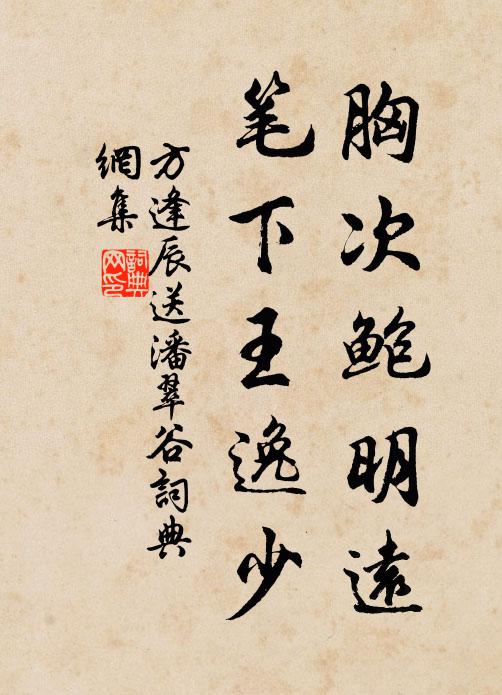 胸次鲍明遠
笔下王逸少
方逢辰送潘翠谷詞典
網集
詞典
网印